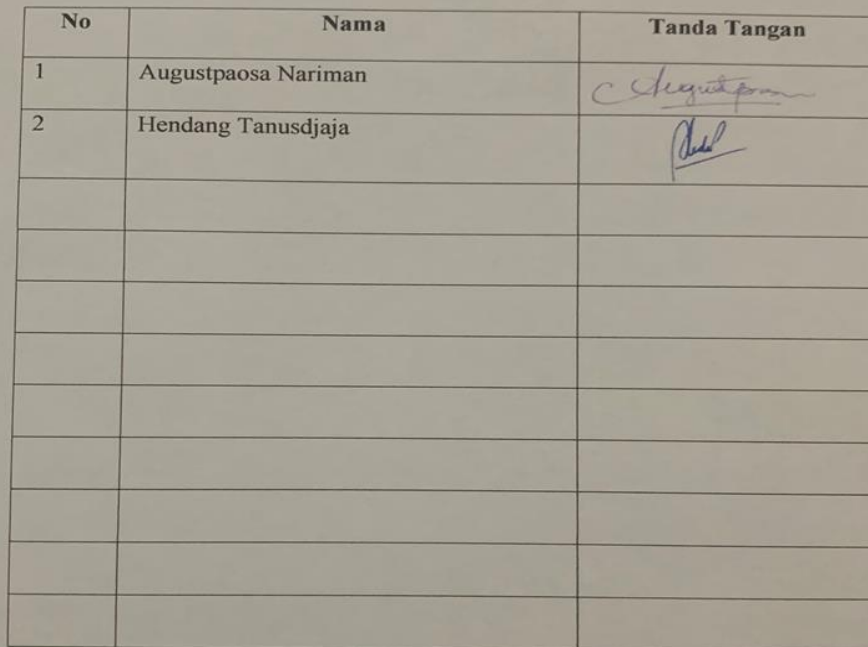 No Nama Tanda Tangan
1 Augustpaosa Nariman
2 Hendang Tanusdjaja